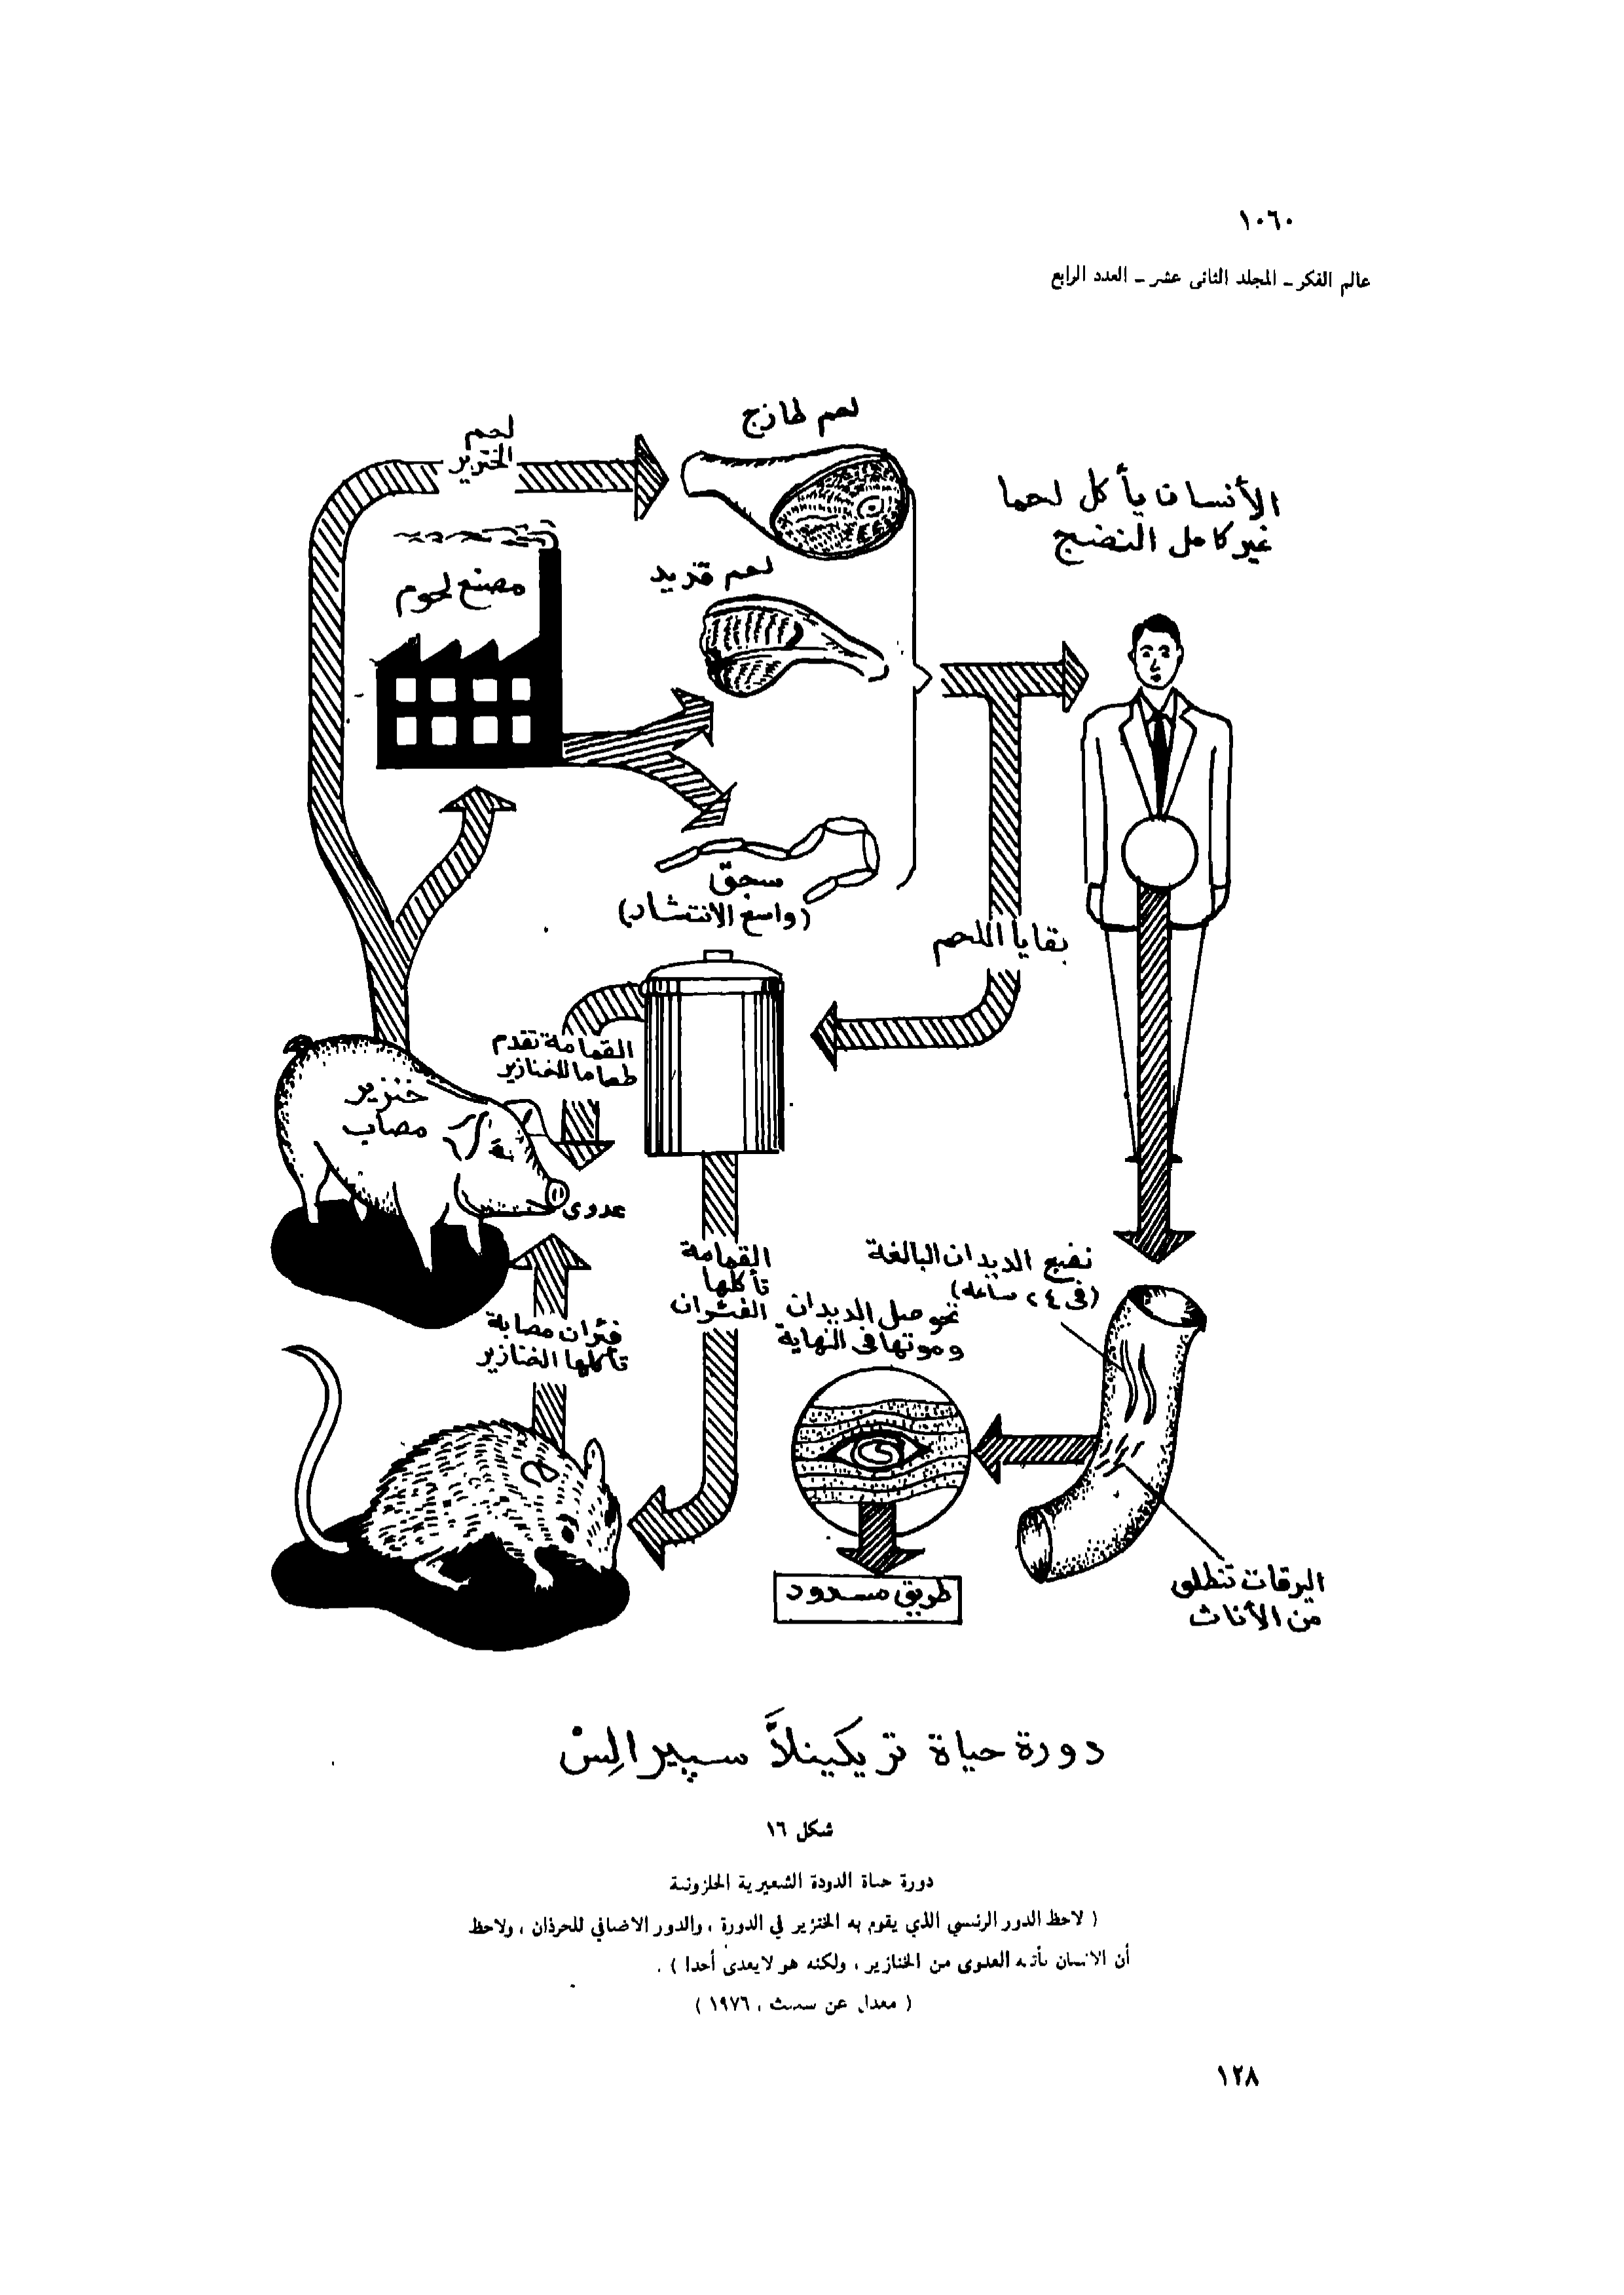 ١٠٦٠
عالم الفكر ـ المجلد الثانى عشر ـ العدد الرابع
لحم
الخنزير
لحم طازج
الأنسان يأكل لحما
غير كامل النضج
مصنع لحوم
لحم قديد
سجق
(واسع الانتشار)
بقايا اللحم
القمامة تقدم
طعاما للخنازير
خنزير
مصاب
عدوى
القمامة
تأكلها
الفئران
نضج الديدان البالغة
(فى ٢٤ ساعه)
تحوصل الديدان
وموتها فى النهاية
فئران مصابة
تأكلها الخنازير
طريق مسدود
اليرقات تنطلق
من الأناث
دورة حياة تريكينلاَّ سپيرالِسْ
شكل ١٦
دورة حياة الدودة الشعيرية الحلزونية
( لاحظ الدور الرئسي الذي يقوم به الخنزير في الدورة ، والدور الاضافي للجرذان ، ولاحظ
أن الانسان يأتيه العدوى من الخنازير ، ولكنه هو لايعدى أحدا ) .
( معدل عن سميث ، ١٩٧٦ )
١٢٨